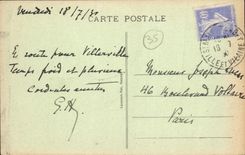 Vendredi 18/7/30
CARTE POSTALE
35
En route pour Villerville
Temps froid et pluvieux
Cordiales amitiés
G.H
Monsieur Joseph
46 Boulevard Voltaire
Paris